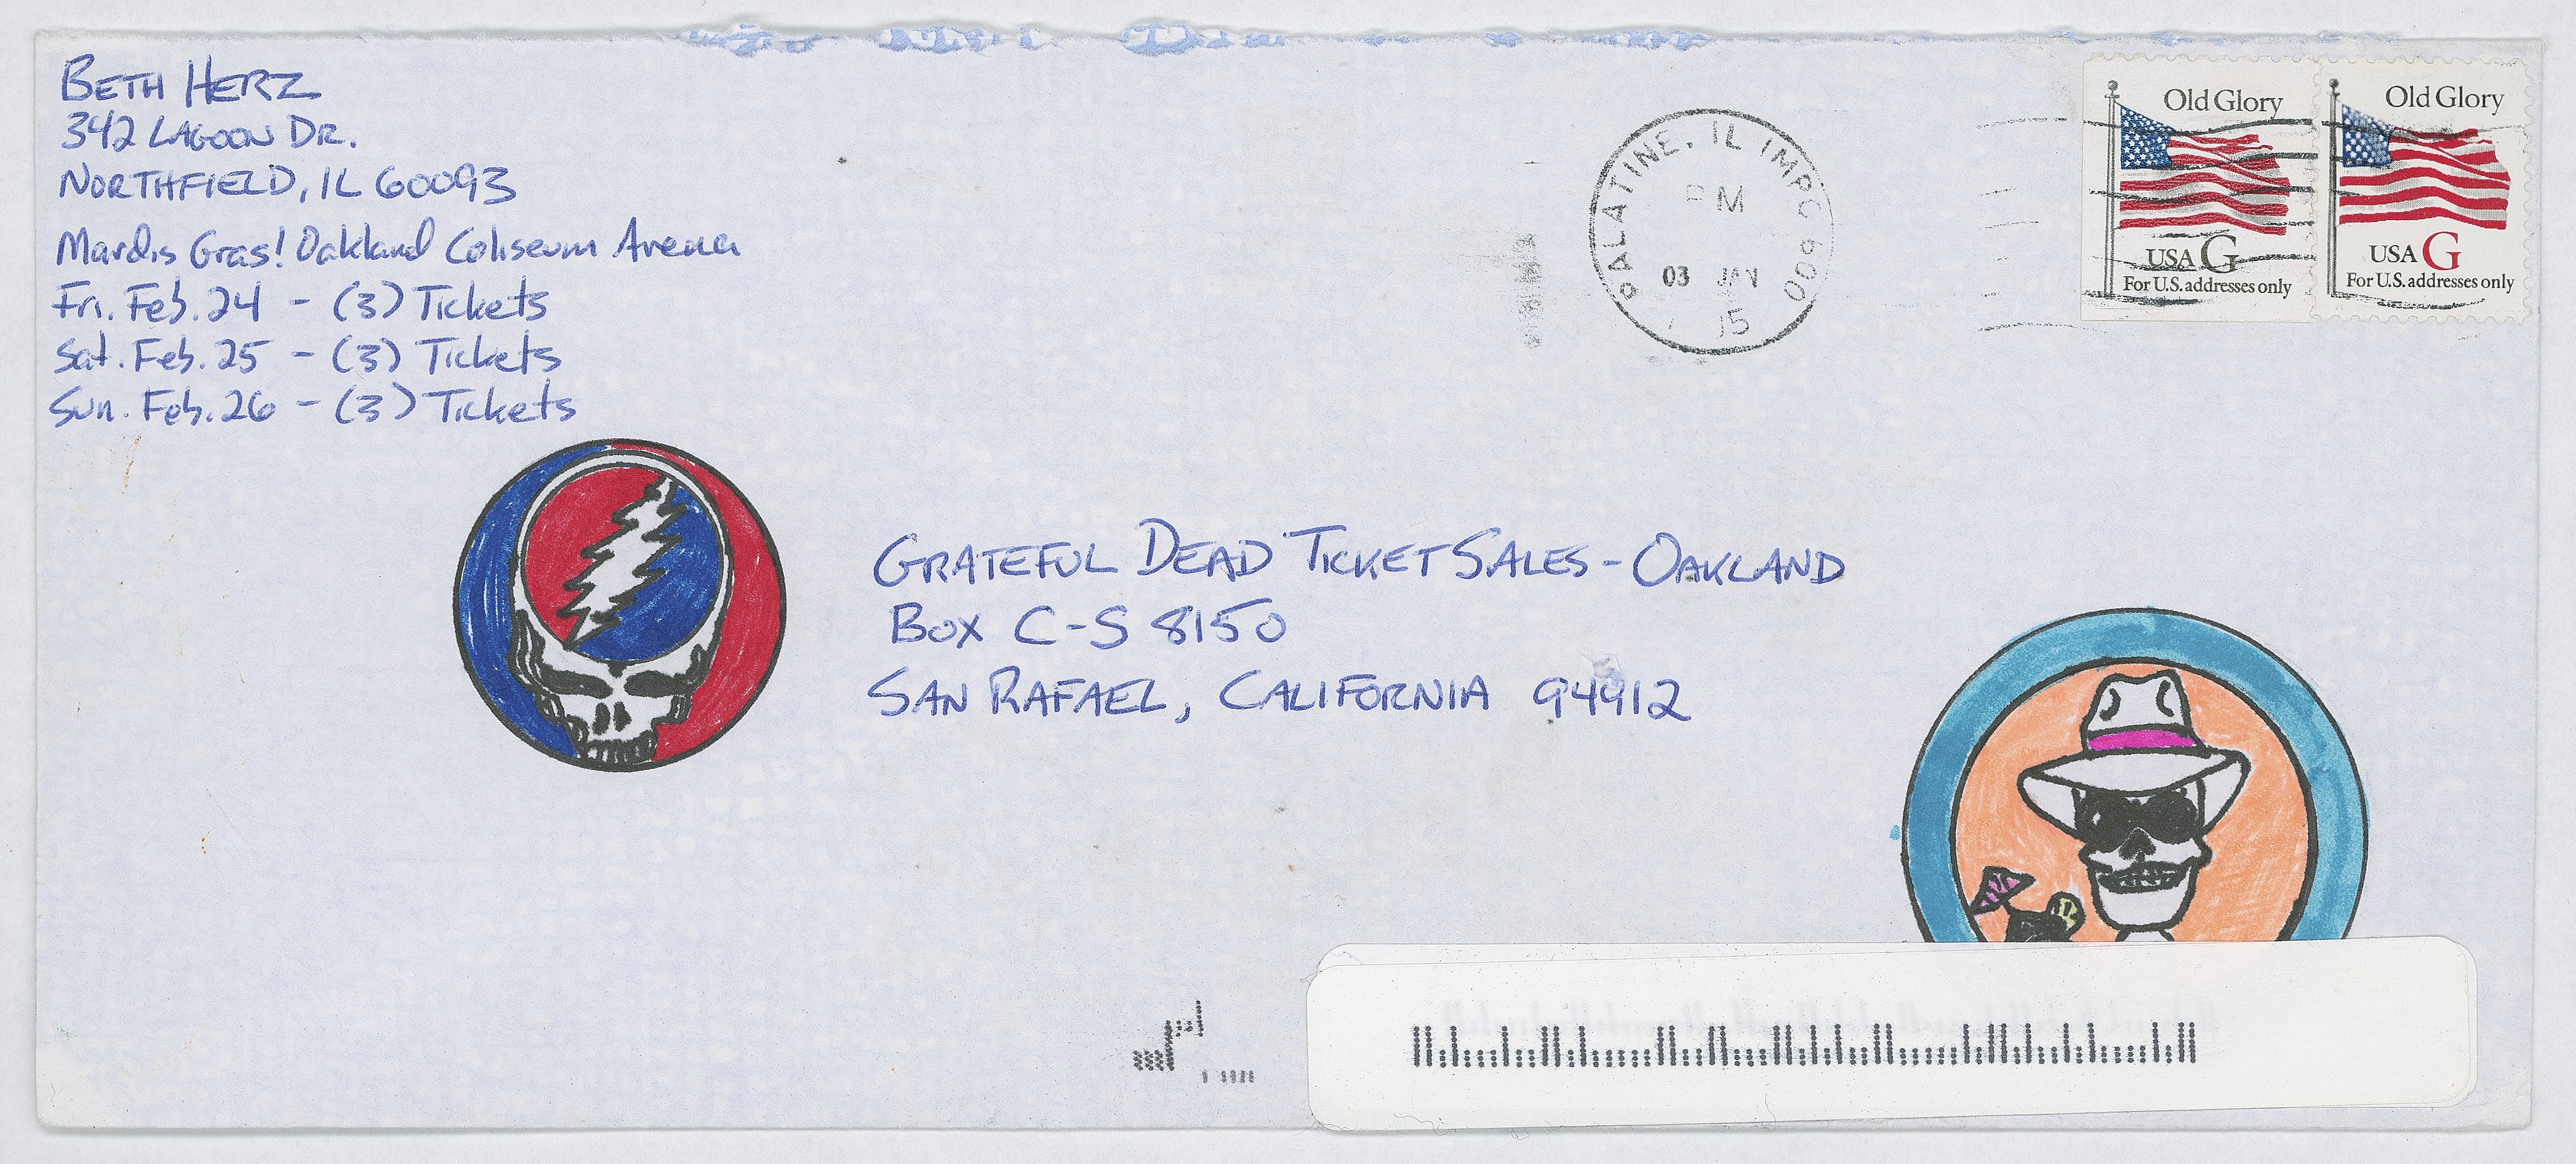 BETH HERZ
342 LAGOON DR.
NORTHFIELD, IL 60093
Mardis Gras! Oakland Coliseum Arena
Fri. Feb. 24 - (3) Tickets
Sat. Feb. 25 - (3) Tickets
Sun. Feb. 26 - (3) Tickets
PALATINE, IL IMPC 600
PM
03 JAN
Old Glory
USA G
For U.S. addresses only
Old Glory
USA G
For U.S. addresses only
GRATEFUL DEAD TICKET SALES - OAKLAND
BOX C-S 8150
SAN RAFAEL, CALIFORNIA 94912